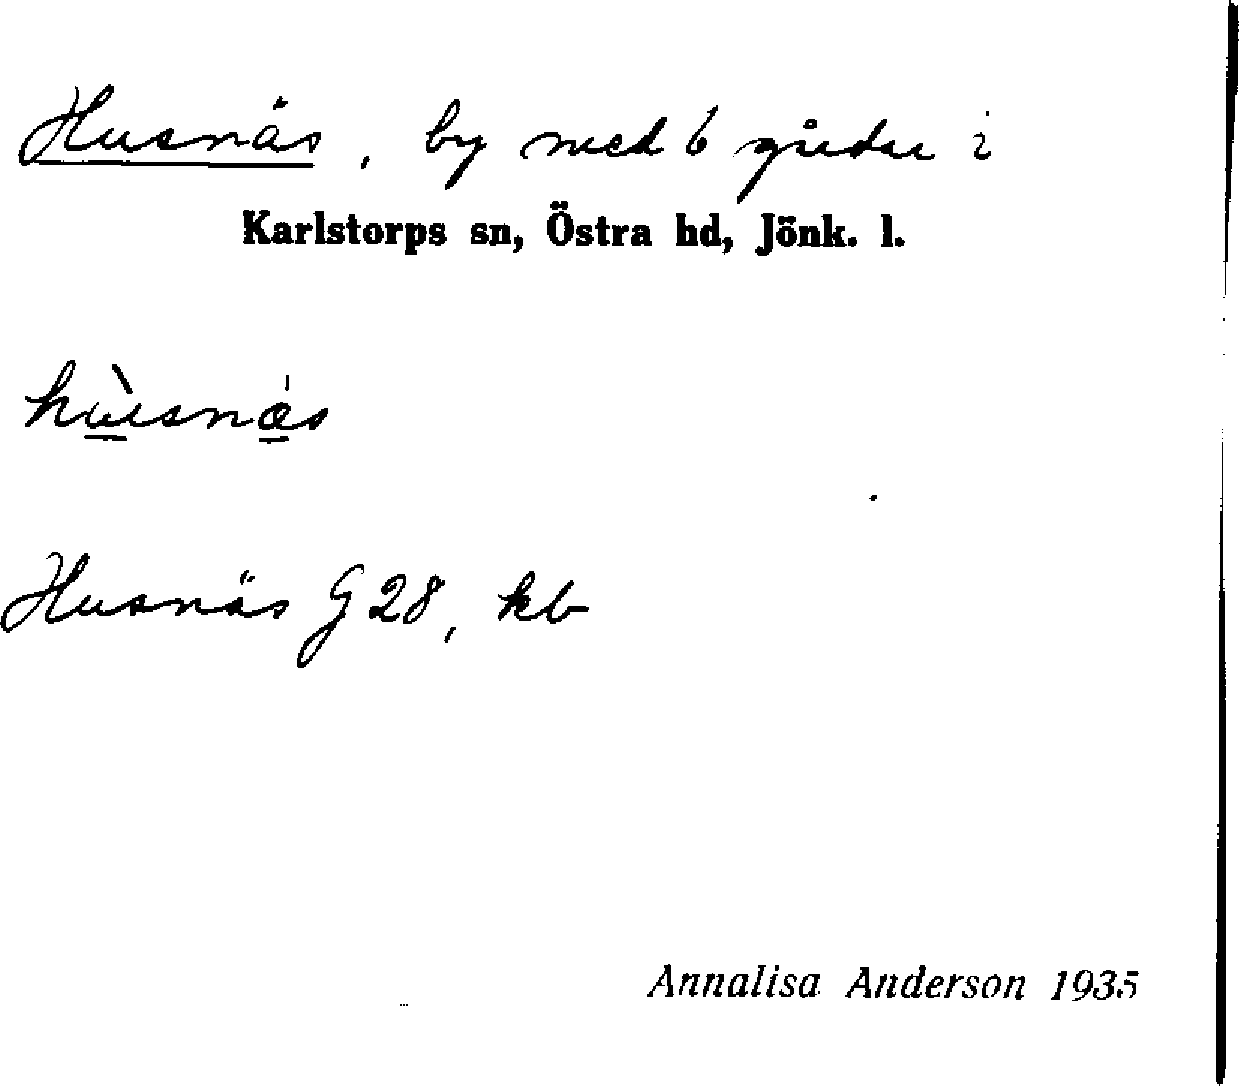 Husnäs, by med 6 gårdar i
Karlstorps sn, Östra hd, Jönk. l.
hùsnæ̀s
Husnäs G 28, kb
Annalisa Anderson 1935